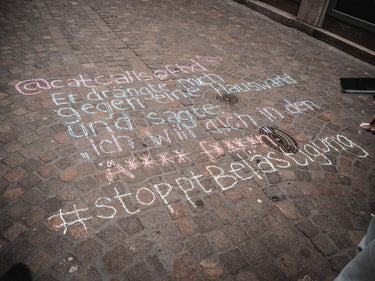 @catcallsofbdf
Er drängte mich
gegen einer Hauswand
und sagte
"Ich will dich in den
A**** f*****"
#stopptBelästigung